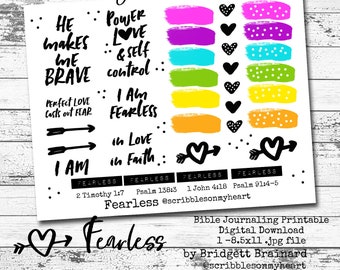 He
makes
me
BRAVE
Perfect Love
Casts out FEAR
I AM
Power
LOVE
& self
control
I Am
Fearless
in Love
in Faith
FEARLESS FEARLESS FEARLESS FEARLESS
2 Timothy 1:7 Psalm 138:3 1 John 4:18 Psalm 91:4-5
Fearless @scribblesonmyheart
Fearless
Bible Journaling Printable
Digital Download
1 -8.5x11 .jpg file
by Bridgett Brainard
@scribblesonmyheart